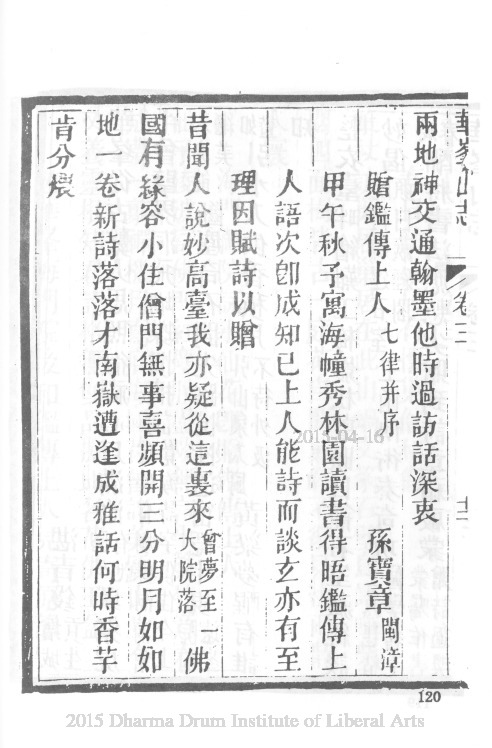 華峯山志
卷三
十二
兩地神交通翰墨他時過訪話深衷
贈鑑傳上人 七律并序 孫寶章 閩漳
甲午秋予寓海幢秀林園讀書得晤鑑傳上
人語次卽成知己上人能詩而談玄亦有至
理因賦詩以贈
昔聞人說妙高臺我亦疑從這裏來 曾夢至一佛大院落
國有緣容小住僧門無事喜頻開三分明月如如
地一卷新詩落落才南嶽遭逢成雅話何時香芋
肯分煨
2015-04-16
120
2015 Dharma Drum Institute of Liberal Arts